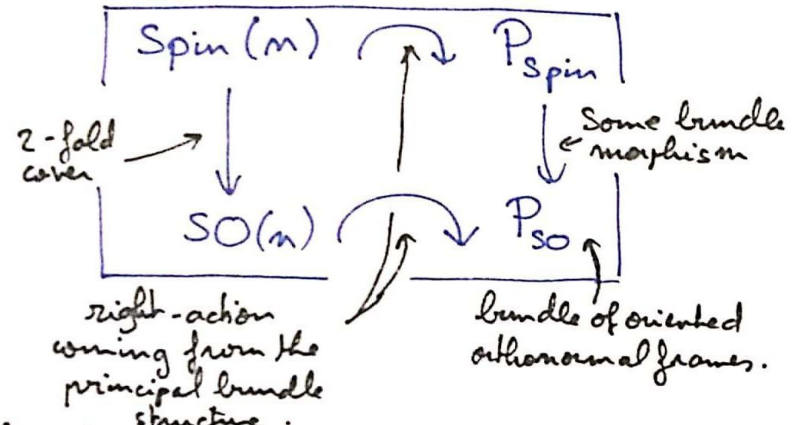 Spin(n) P_Spin
2-fold
cover
Some bundle
morphism
SO(n) P_SO
right-action
coming from the
principal bundle
structure.
bundle of oriented
orthonormal frames.